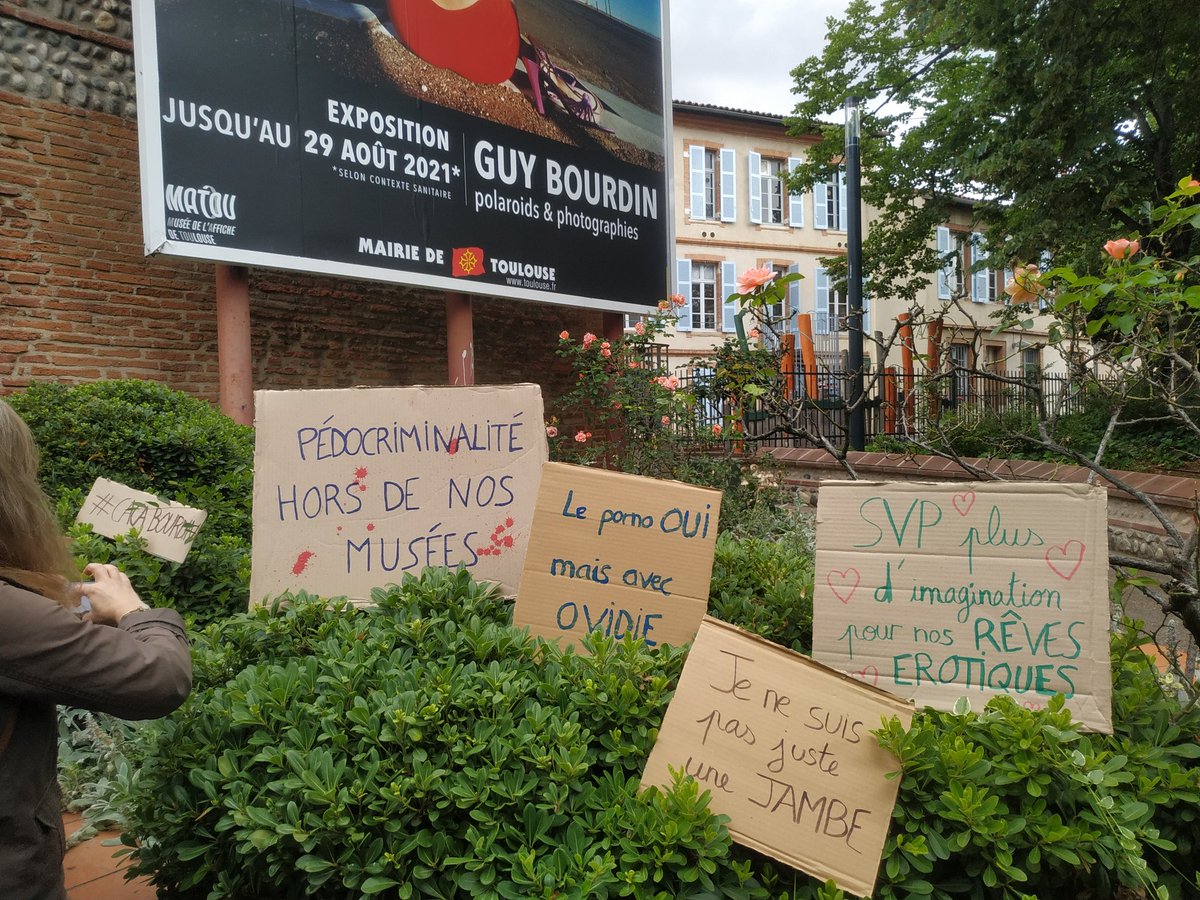 EXPOSITION
JUSQU'AU 29 AOÛT 2021*
*SELON CONTEXTE SANITAIRE
GUY BOURDIN
polaroids & photographies
MATOU
MUSÉE DE L'AFFICHE
DE TOULOUSE
MAIRIE DE TOULOUSE
www.toulouse.fr
PÉDOCRIMINALITÉ
HORS DE NOS
MUSÉES
Le porno OUI
mais avec
OVIDIE
SVP plus
d'imagination
pour nos RÊVES
EROTIQUES
Je ne suis
pas juste
une JAMBE